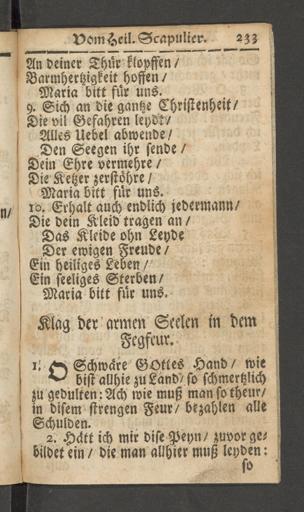 Vom Heil. Scapulier. 233
An deiner Thür klopffen /
Barmhertzigkeit hoffen /
Maria bitt für uns.
9. Sich an die gantze Christenheit /
Die vil Gefahren leydt /
Alles Uebel abwende /
Den Seegen ihr sende /
Dein Ehre vermehre /
Die Ketzer zerstöhre /
Maria bitt für uns.
10. Erhalt auch endlich jedermann /
Die dein Kleid tragen an /
Das Kleide ohn Leyde
Der ewigen Freude /
Ein heiliges Leben /
Ein seeliges Sterben /
Maria bitt für uns.
Klag der armen Seelen in dem
Fegfeur.
1. O Schwäre GOttes Hand / wie
bist allhie zu Land / so schmertzlich
zu gedulten: Ach wie muß man so theur /
in disem strengen Feur / bezahlen alle
Schulden.
2. Hätt ich mir dise Peyn / zuvor ge-
bildet ein / die man allhier muß leyden:
so
n /